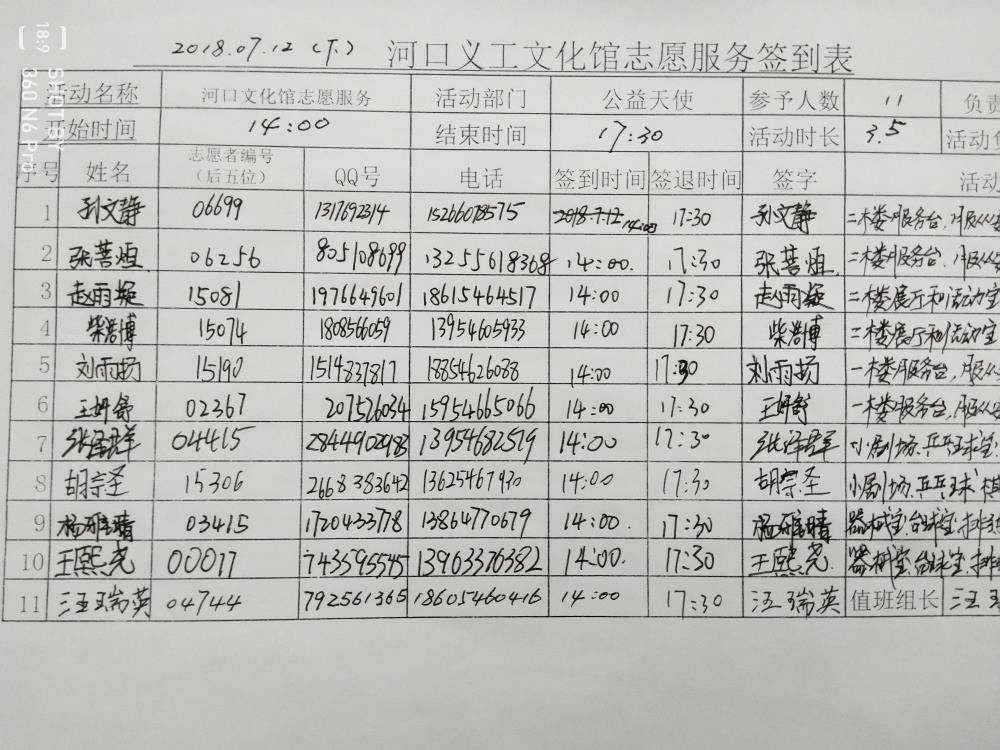 2018.07.12（下） 河口义工文化馆志愿服务签到表
活动名称 河口文化馆志愿服务 活动部门 公益天使 参予人数 11 负责
开始时间 14:00 结束时间 17:30 活动时长 3.5 活动负
序号 姓名 志愿者编号（后五位） QQ号 电话 签到时间 签退时间 签字 活动
1 孙文静 06699 1317692314 15266078575 2018.7.12 14:00 17:30 孙文静 二楼服务台,服从安
2 张菩烜 06256 805108699 13255618368 14:00. 17:30 张菩烜 二楼服务台.服从安
3 赵雨凝 15081 1976649601 18615464517 14:00 17:30 赵雨凝 二楼展厅和活动室
4 柴浩博 15074 1808566059 13954605933 14:00 17:30 柴浩博 二楼展厅和活动室
5 刘雨扬 15190 1514837817 18854626088 14:00 17:30 刘雨扬 一楼服务台,服从
6 王妍舒 02367 207526034 15954665066 14:00 17:30 王妍舒 一楼服务台,服从安
7 张泽群 04415 2844902983 13954682519 14:00 17:30 张泽群 小剧场.乒乓球室
8 胡宗圣 15306 2668383642 13625467930 14:00 17:30 胡宗圣 小剧场.乒乓球 棋
9 杨雅晴 03415 1720433778 13864770679 14:00. 17:30 杨雅晴 器械室,台球室,排练
10 王熙尧 00017 743595545 13963376382 14:00. 17:30 王熙尧. 器械室,台球室.排
11 汪瑞英 04744 792561365 18605460416 14:00 17:30 汪瑞英 值班组长 汪
[ 18:9 ]
SHOT BY
360 N6 Pro